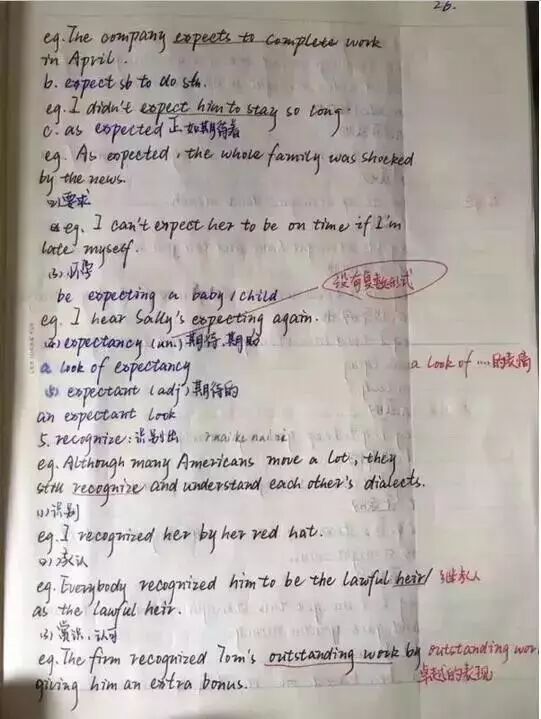 26.
eg. The company expects to complete work
in April.
b. expect sb to do sth.
eg. I didn't expect him to stay so long.
c. as expected 正如期待着
eg. As expected, the whole family was shocked
by the news.
(2)要求
eg. I can't expect her to be on time if I'm
late myself.
(3)怀孕
be expecting a baby/child 没有复数形式
eg. I hear Sally's expecting again.
(4) expectancy (un.) 期待,期盼
a look of expectancy a look of ....的表情
(5) expectant (adj) 期待的
an expectant look
5. recognize: 识别出
eg. Although many Americans move a lot, they
still recognize and understand each other's dialects.
(1)识别
eg. I recognized her by her red hat.
(2)承认
eg. Everybody recognized him to be the lawful heir/ 继承人
as the lawful heir.
(3)赏识,认可
eg. The firm recognized Tom's outstanding work by outstanding wor
giving him an extra bonus. 卓越的表现